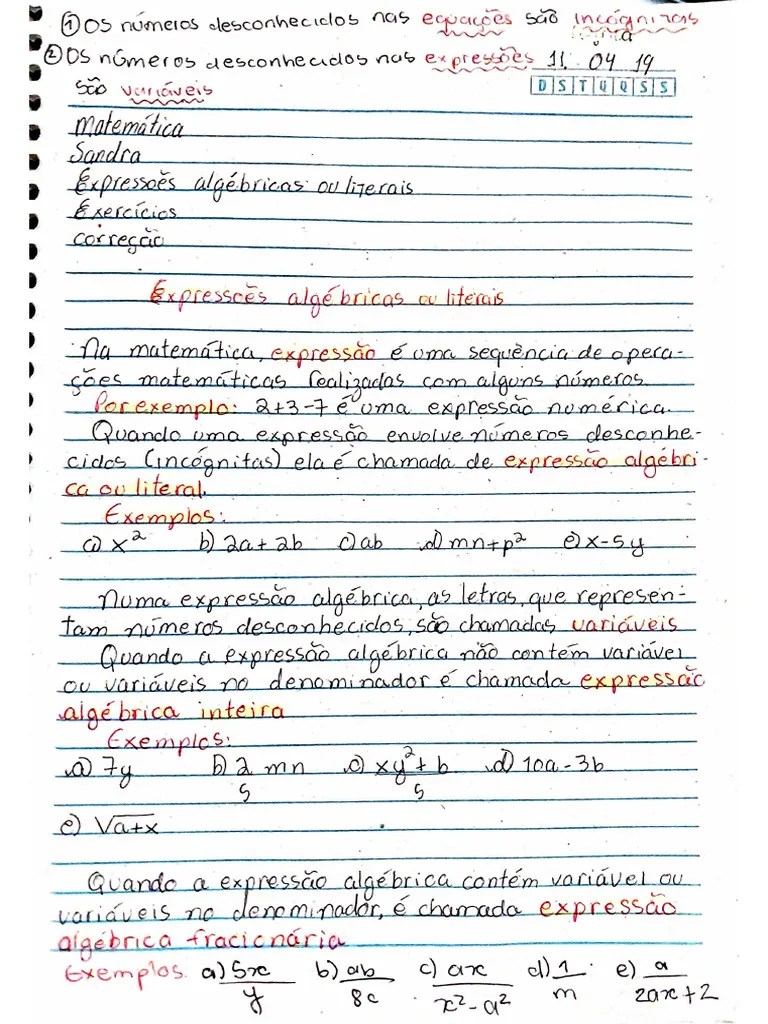 ① Os números desconhecidos nas equações são incógnitas
② Os números desconhecidos nas expressões 11. 04 19
são variáveis D S T Q Q S S
Matemática
Sandra
Expressões algébricas ou literais
Exercícios
Correção
Expressões algébricas ou literais
Na matemática, expressão é uma sequência de opera-
ções matemáticas realizadas com alguns números.
Por exemplo: 2+3-7 é uma expressão numérica.
Quando uma expressão envolve números desconhe-
cidos (incógnitas) ela é chamada de expressão algébri-
ca ou literal.
Exemplos:
a) x² b) 2a+2b c) ab d) mn+p² e) x-5y
Numa expressão algébrica, as letras, que represen-
tam números desconhecidos, são chamadas variáveis
Quando a expressão algébrica não contém variável
ou variáveis no denominador é chamada expressão
algébrica inteira
Exemplos:
a) 7y b) 2/5 mn c) xy²+b/5 d) 10a-3b
e) √a+x
Quando a expressão algébrica contém variável ou
variáveis no denominador, é chamada expressão
algébrica fracionária
Exemplos. a) 5x/y b) ab/8c c) ax/x²-a² d) 1/m e) a/2ax+2